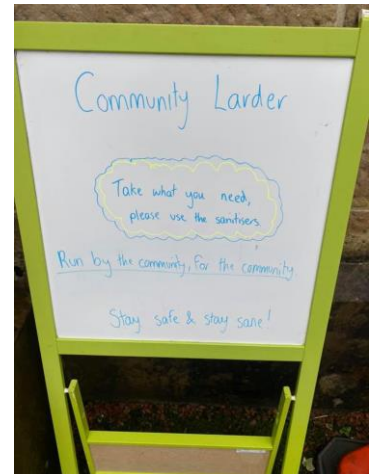 Community Larder
Take what you need,
please use the sanitisers
Run by the community, for the community
Stay safe & stay sane!